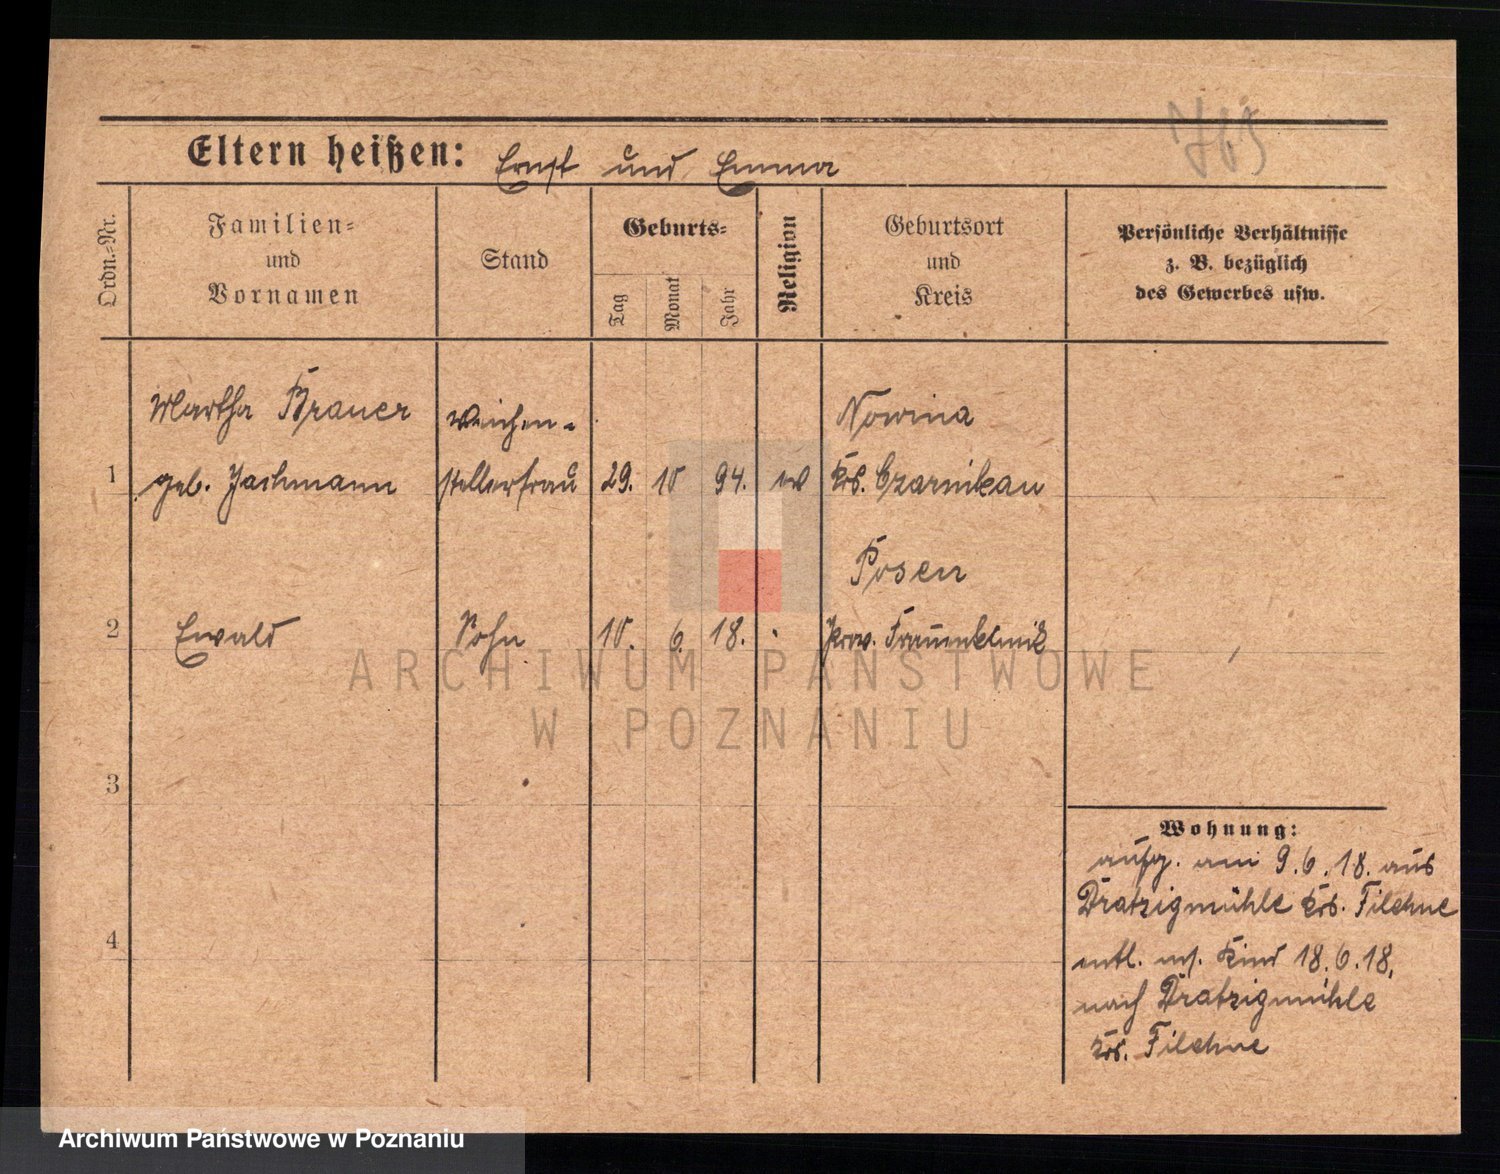 Eltern heißen: Ernst und Emma
Ordn.-Nr.
Familien-
und
Vornamen
Stand
Geburts-
Tag
Monat
Jahr
Religion
Geburtsort
und
Kreis
Persönliche Verhältnisse
z. B. bezüglich
des Gewerbes usw.
Martha Brauer Weichen- Nowina
1 geb. Jachmann stellerfrau 29. 10 94. ev Krs. Czarnikau
Posen
2 Ewald Sohn 10. 6. 18. Prov. Frauenklinik
ARCHIWUM PAŃSTWOWE
W POZNANIU
3
4
Wohnung:
aufg. am 9.6.18. aus
Dratzigmühle Krs. Filehne
entl. m. Kind 18.6.18.
nach Dratzigmühle
Krs. Filehne
Archiwum Państwowe w Poznaniu